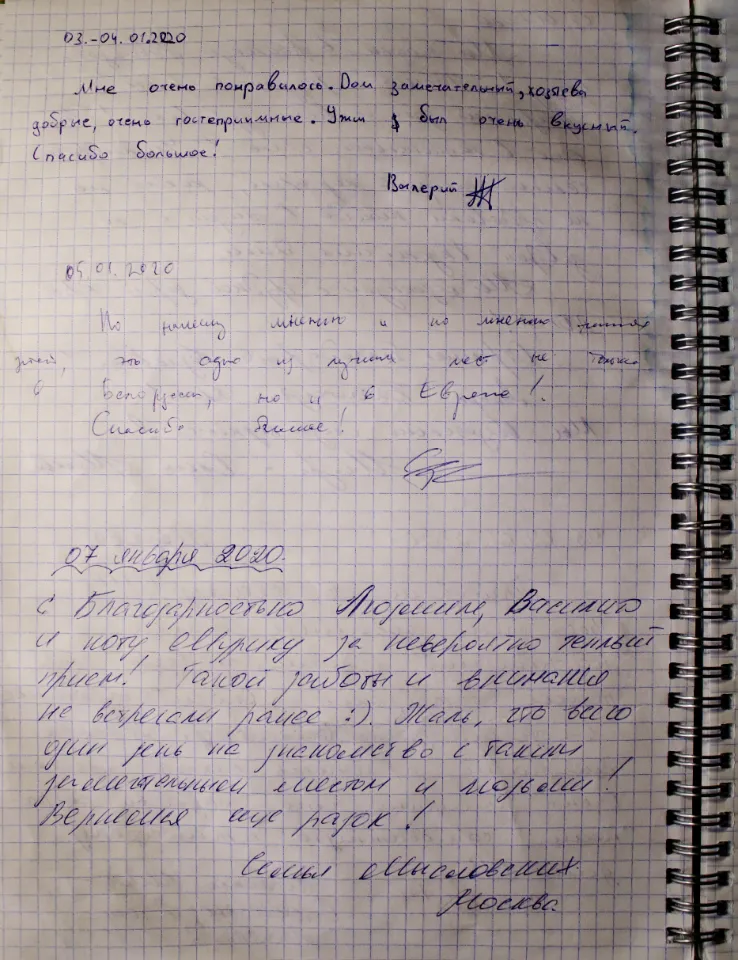 03.-04.01.2020
Мне очень понравилось. Дом замечательный, хозяева
добрые, очень гостеприимные. Ужин был очень вкусный.
Спасибо большое!
Валерий
05.01.2020
По нашему мнению и по мнению наших
детей, это одно из лучших мест не только
в Белоруссии, но и в Европе!
Спасибо большое!
07 января 2020.
С Благодарностью Людмиле, Василию
и коту Мурику за невероятно теплый
прием! Такой заботы и внимания
не встречали ранее :). Жаль, что всего
один день на знакомство с таким
замечательным местом и людьми!
Вернемся еще разок!
Семья Мысловских
Москва